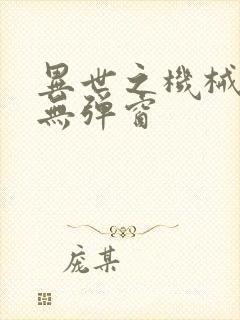 異世之機械
無彈窗
庞某